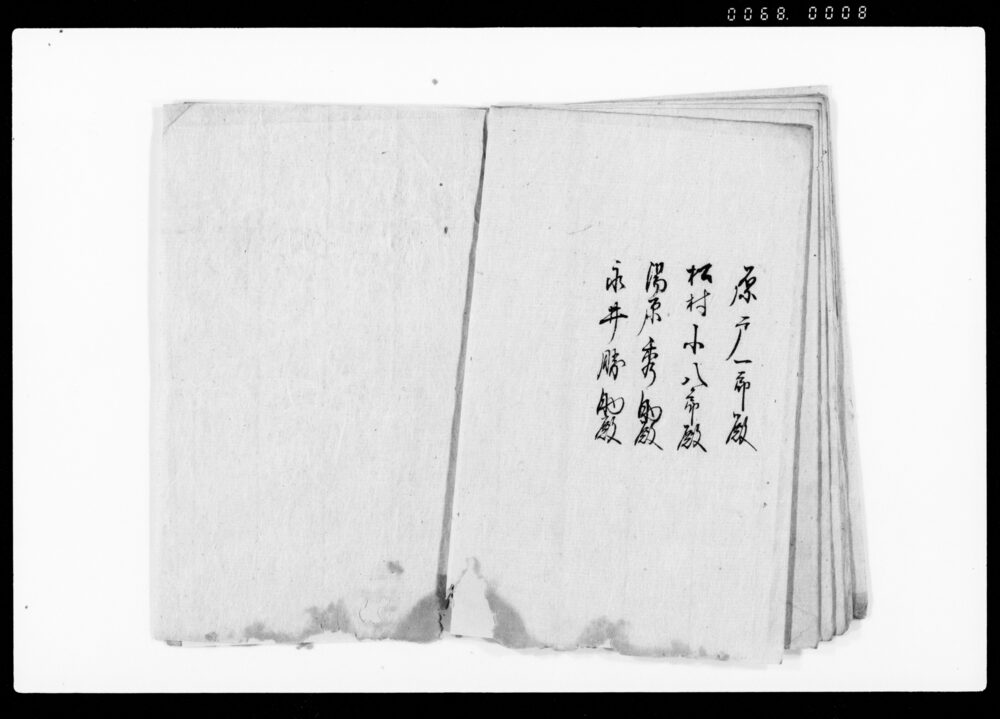 0068. 0008
原戸一郎殿
松村小八郎殿
湯原秀助殿
永井勝助殿